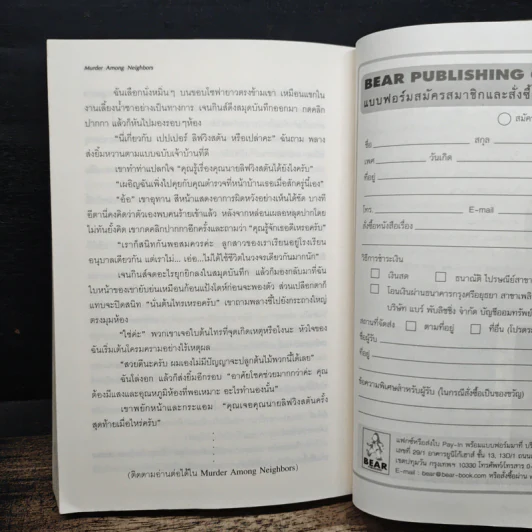 Murder Among Neighbors
ฉันเลือกนั่งหมิ่นๆ บนขอบโซฟายาวตรงข้ามเขา เหมือนแขกใน
งานเลี้ยงน้ำชาอย่างเป็นทางการ เจนกินส์ดึงสมุดบันทึกออกมา กดคลิก
ปากกา แล้วก็หันไปมองรอบๆห้อง
"นี่เกี่ยวกับ เปปเปอร์ ลิฟวิงสตัน หรือเปล่าคะ" ฉันถาม พลาง
ส่งยิ้มหวานตามแบบฉบับเจ้าบ้านที่ดี
เขาทำท่าแปลกใจ "คุณรู้เรื่องคุณนายลิฟวิงสตันได้ยังไงครับ"
"เผอิญฉันเพิ่งไปคุยกับคุณตำรวจที่หน้าบ้านเธอเมื่อสักครู่นี้เอง"
"อ้อ" เขาอุทาน สีหน้าแสดงอาการผิดหวังอย่างเห็นได้ชัด บางที
อีตานี่คงคิดว่าตัวเองพบคนร้ายเข้าแล้ว หลังจากหล่อนเผลอหลุดปากโดย
ไม่ทันยั้งคิด เขากดคลิกปากกาอีกครั้งและถามว่า "คุณรู้จักเธอดีเหรอครับ"
"เราก็สนิทกันพอสมควรค่ะ ลูกสาวของเราเรียนอยู่โรงเรียน
อนุบาลเดียวกัน แต่เราไม่... เอ่อ...ไม่ได้ใช้ชีวิตในวงจรเดียวกันมากนัก"
เจนกินส์จดอะไรยุกยิกลงในสมุดบันทึก แล้วก็มองกลับมาที่ฉัน
ใบหน้าของเขายับย่นเหมือนก้อนแป้งโดที่ก่อนจะพองตัว ส่วนเปลือกตาก็
แทบจะปิดสนิท "นั่นต้นไทรเหรอครับ" เขาถามพลางชี้ไปยังกระถางใหญ่
ตรงมุมห้อง
"ใช่ค่ะ" พวกเขาเจอใบต้นไทรที่จุดเกิดเหตุหรือไงนะ หัวใจของ
ฉันเริ่มเต้นโครมครามอย่างไร้เหตุผล
"สวยดีนะครับ ผมเองไม่มีปัญญาจะปลูกต้นไม้พวกนี้ได้เลย"
ฉันโล่งอก แล้วก็ส่งยิ้มอีกรอบ "อาศัยโชคช่วยมากกว่าค่ะ คุณ
ต้องมีแสงและอุณหภูมิห้องที่พอเหมาะ อะไรทำนองนั้น"
เขาพยักหน้าและกระแอม "คุณเจอคุณนายลิฟวิงสตันครั้ง
สุดท้ายเมื่อไหร่ครับ"
.
.
.
(ติดตามอ่านต่อได้ใน Murder Among Neighbors)
BEAR PUBLISHING
แบบฟอร์มสมัครสมาชิกและสั่งซื้
สมัค
ชื่อ สกุล
เพศ วันเกิด
ที่อยู่
โทร. E-mail
สั่งซื้อหนังสือเรื่อง
วิธีการชำระเงิน
เงินสด ธนาณัติ ไปรษณีย์สาขา
โอนเงินผ่านธนาคารกรุงศรีอยุธยา สาขาเพลิ
บริษัท แบร์ พับลิชชิ่ง จำกัด บัญชีออมทรัพย์
สถานที่จัดส่ง ตามที่อยู่ ที่อื่น (โปรด
ชื่อผู้รับ
ที่อยู่
ข้อความพิเศษสำหรับผู้รับ (ในกรณีสั่งซื้อเป็นของขวัญ)
BEAR
แฟกซ์หรือส่งใบ Pay-in พร้อมแบบฟอร์มมาที่ บริ
เลขที่ 29/1 อาคารยูนิโก้เฮ้าส์ ชั้น 13, 13D/1 ถนน
เขตปทุมวัน กรุงเทพฯ 10330 โทรศัพท์/โทรสาร 0-
E-mail : bear@bear-book.com หรือสั่งซื้อผ่าน